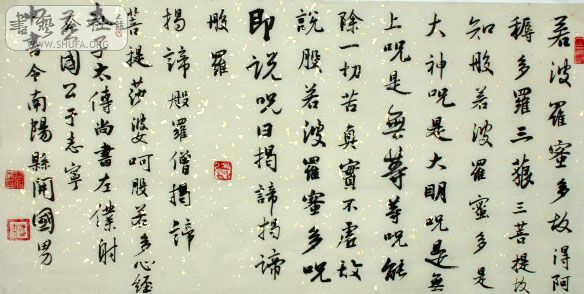 若波羅蜜多故得阿
耨多羅三藐三菩提故
知般若波羅蜜多是
大神呪是大明呪是無
上呪是無等等呪能
除一切苦真實不虛故
說般若波羅蜜多呪
即說呪曰揭諦揭諦
般羅
揭諦般羅僧揭諦
菩提莎婆呵般若多心經
太子太傅尚書左僕射
燕國公于志寧
中書令南陽縣開國男
WWW.SHUFA.ORG